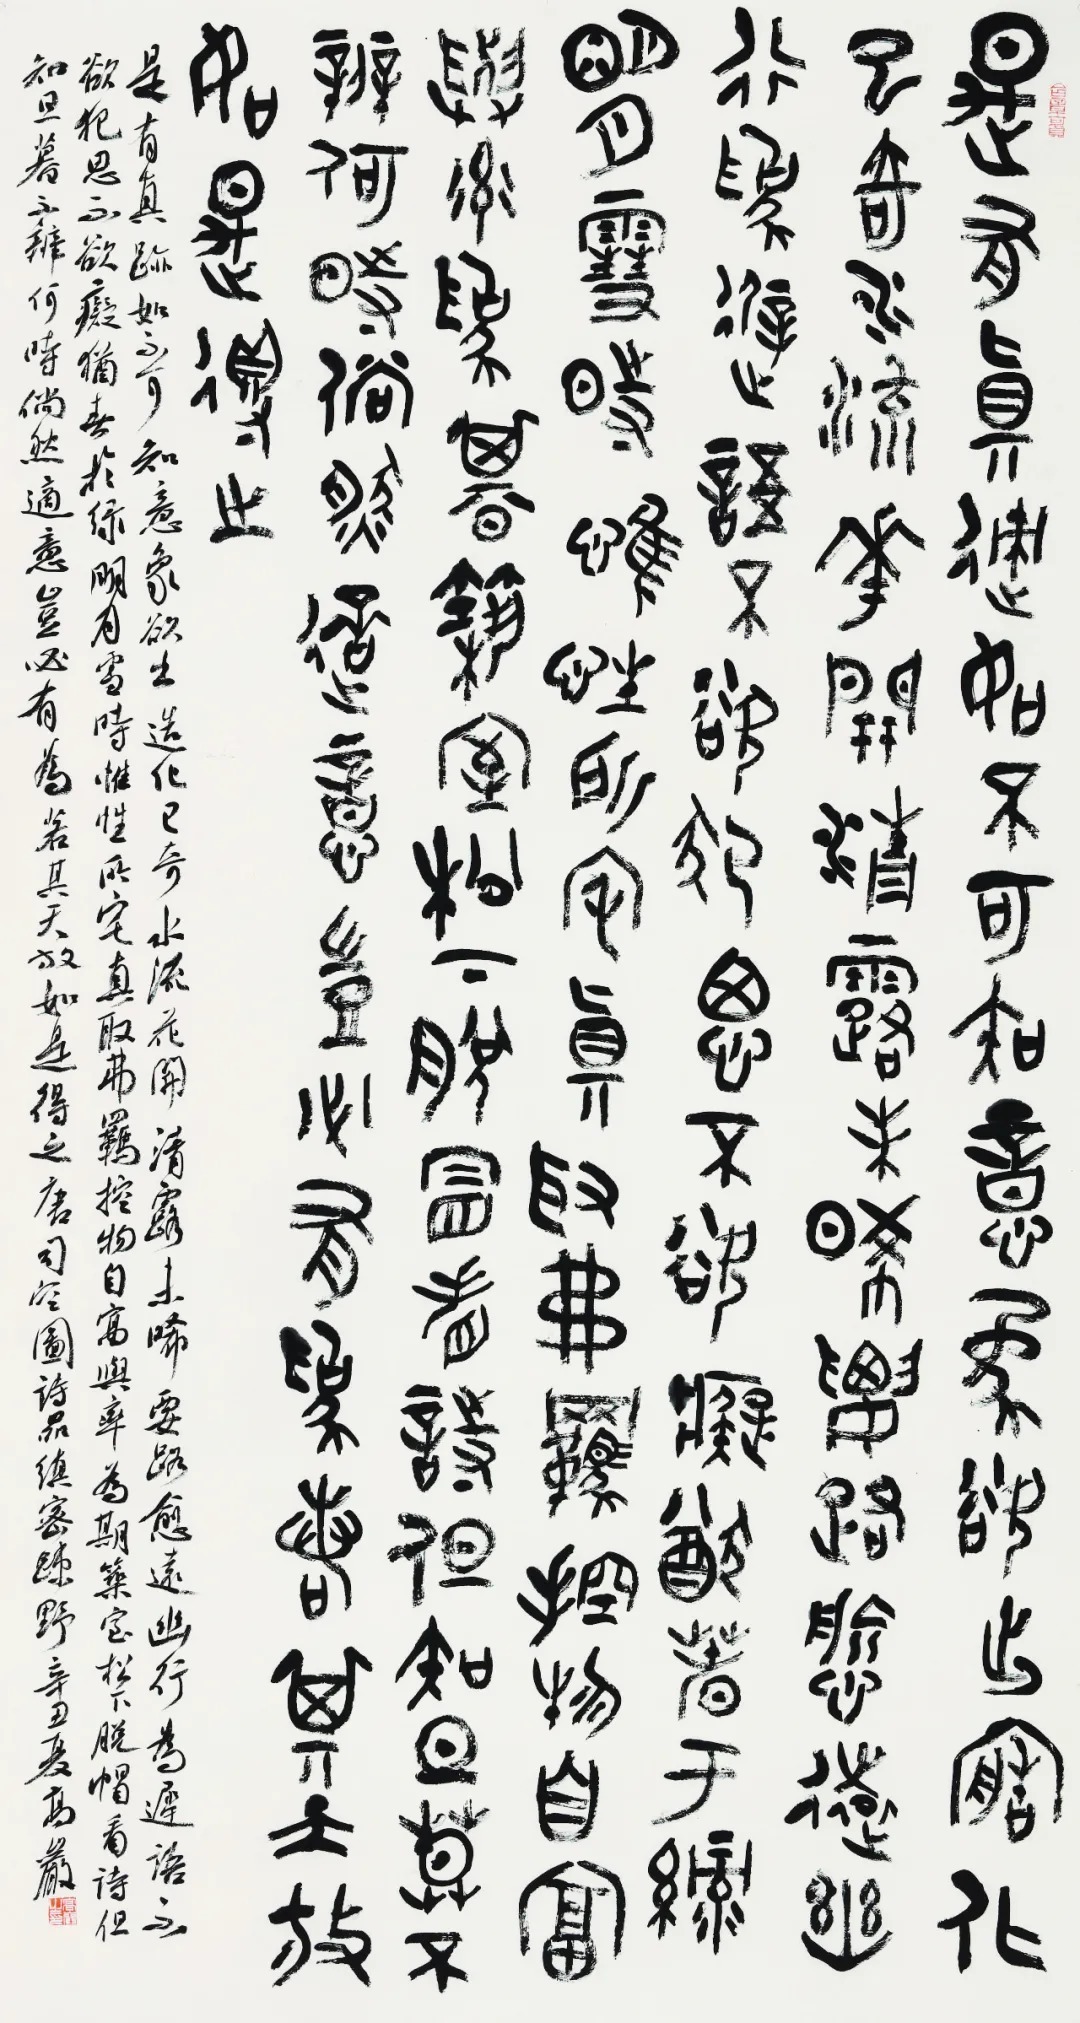 是有真迹如不可知意象欲出造化
已奇水流花開清露未晞要路愈遠幽
行為遲語不欲犯思不欲癡猶春于綠
明月雪時惟性所宅真取弗羈控物自富
與率為期築室松下脫帽看詩但知旦暮不
辨何時倘然適意豈必有為若其天放
如是得之
是有真跡如不可知意象欲出造化已奇水流花開清露未晞要路愈遠幽行為遲語不
欲犯思不欲癡猶春於綠明月雪時惟性所宅真取弗羈控物自富與率為期築室松下脫帽看詩但
知旦暮不辨何時倘然適意豈必有為若其天放如是得之唐司空圖詩品縝密疎野辛丑夏高嚴